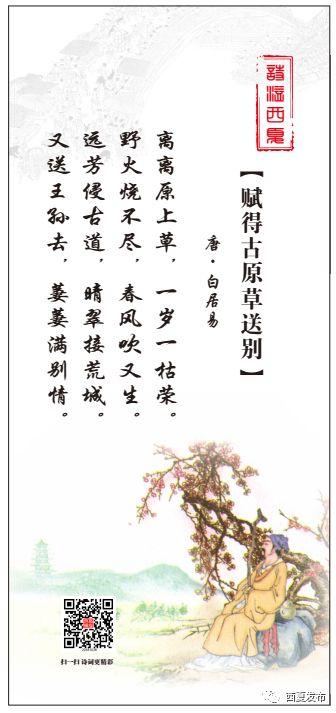 诗滋西夏
【赋得古原草送别】
唐·白居易
离离原上草，一岁一枯荣。
野火烧不尽，春风吹又生。
远芳侵古道，晴翠接荒城。
又送王孙去，萋萋满别情。
扫一扫 诗词更精彩
西夏发布